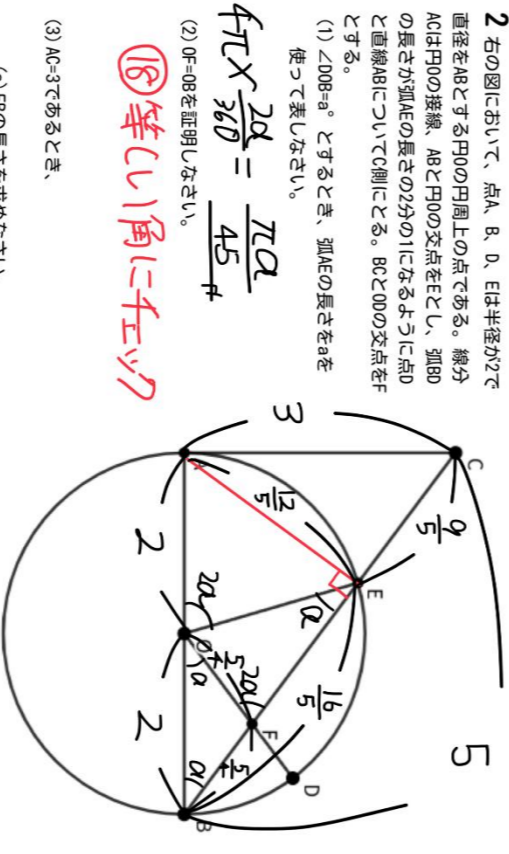 2 右の図において、点A、B、D、Eは半径が2で
直径をABとする円Oの円周上の点である。線分
ACは円Oの接線、ABと円Oの交点をEとし、弧BD
の長さが弧AEの長さの2分の1になるように点D
と直線ABについてC側にとる。BCとODの交点をF
とする。
(1) ∠DOB=a°とするとき、弧AEの長さをaを
使って表しなさい。
4π×2a/360=πa/45
(2) OF=OBを証明しなさい。
⑯等しい角にチェック
(3) AC=3であるとき、
C
3
9/5
5
A
12/5
E
a
2
2a
O
a
5/4
2a
F
16/5
D
2
a
5/4
B